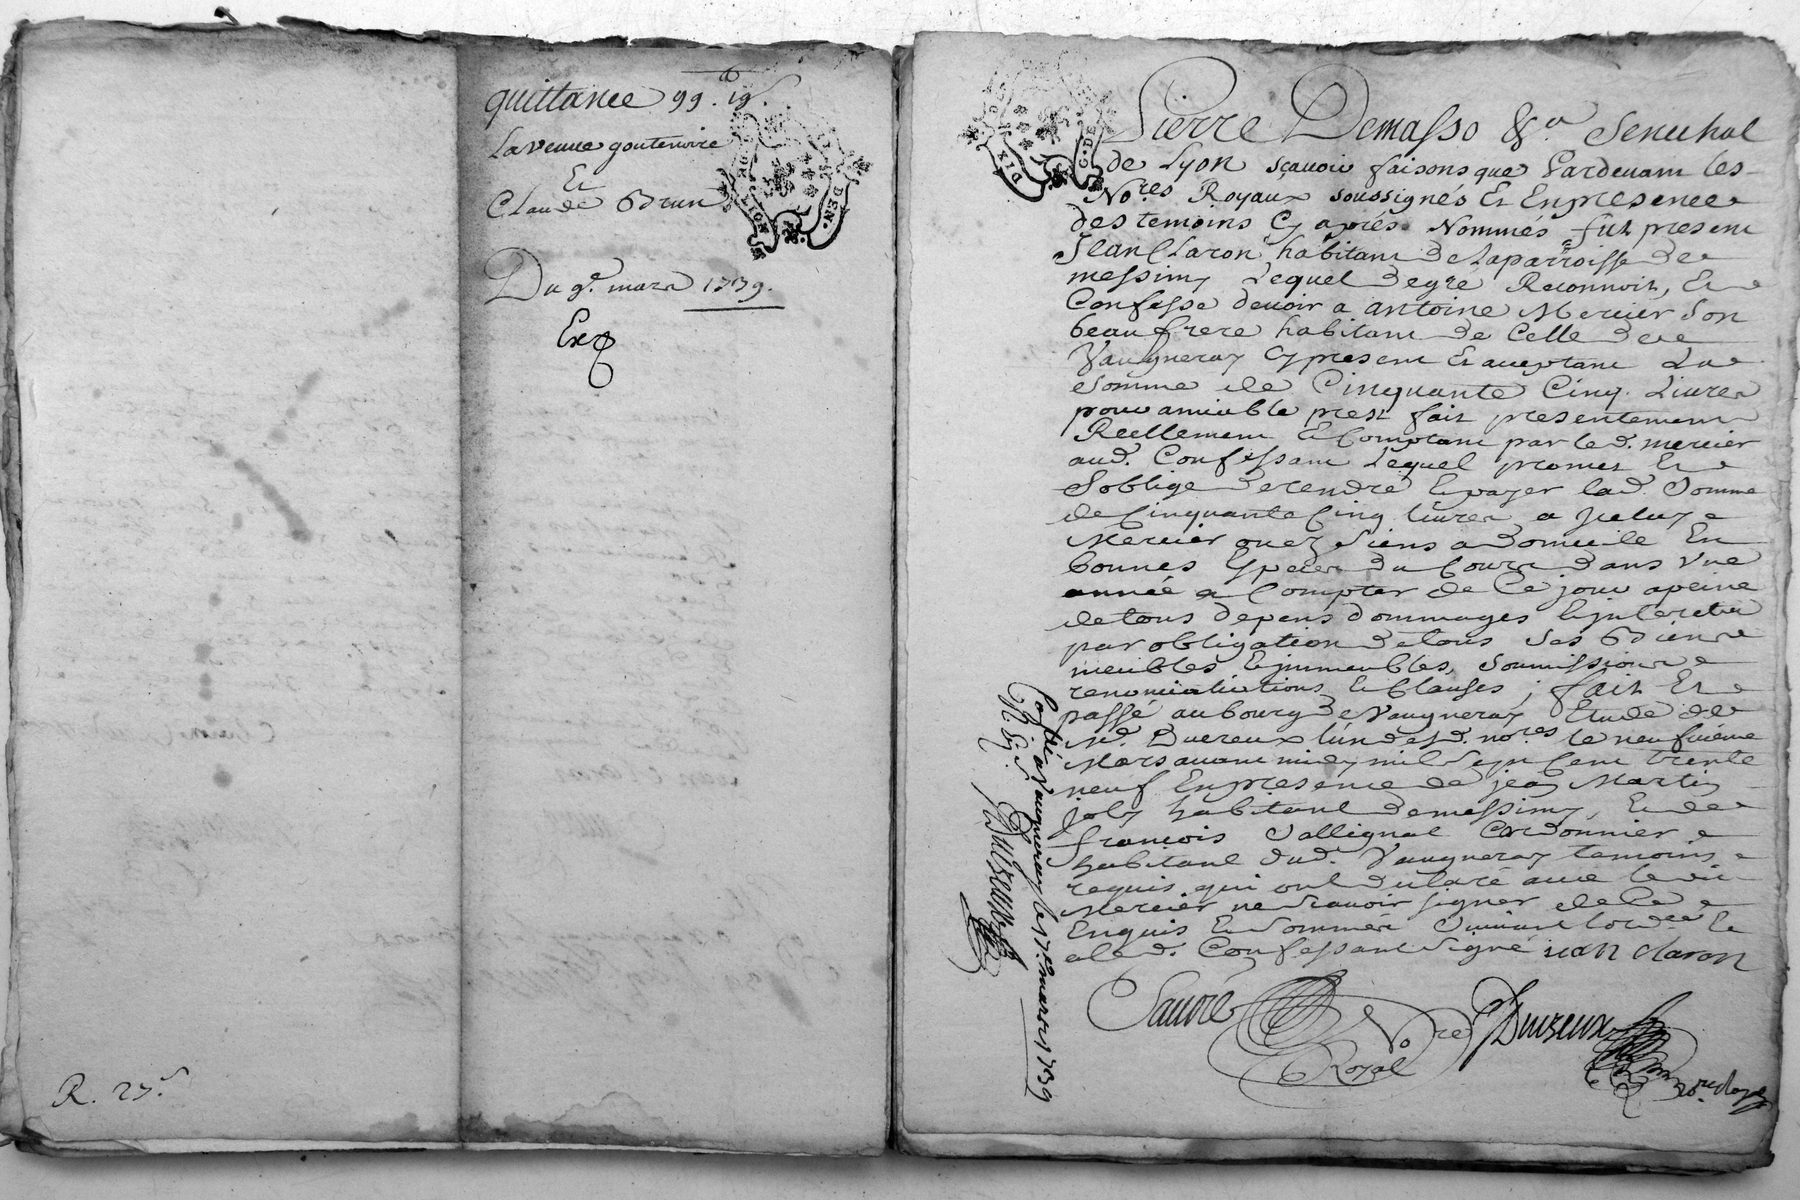 quittance 99.tt 19.s
La veuve goutenoire
Et
Claude Brun
Du 9.e mars 1739.
Exp
R. 27.s
Pierre Demasso &.a Senechal
de Lyon sçavoir faisons que Pardevant les
No.res Royaux soussignés Et En presence
des temoins Cy aprés Nommés fut present
Jean Claron habitant de la parroisse de
messimy Lequel de gré Reconnoit, Et
Confesse devoir a antoine Mercier Son
beaufrere habitant de Celle de
Vaugneray Cy present Et aceptant La
Somme de Cinquante Cinq Livres
pour amiable prest fait presentement
Reellement Et Comptant par le d. mercier
aud. Confessant Lequel promet Et
S'oblige de rendre Et payer lad. Somme
de Cinquante Cinq livres a Iceluy
Mercier ou ez Siens a domicile En
bonnes Especes du Cours dans Une
année a Compter de Ce jour a peine
de tous depens dommages Et Interets
par obligation de tous Ses Biens
meubles Et immeubles, Soumissions
renonciations Et Clauses; fait Et
passé au bourg de Vaugneray Etude de
M.e Duereux l'un desd. no.res le neufvieme
Mars avant midy mil Sept Cent trente
neuf En presence de jean Martin
joly habitant de messimy, Et de
françois Sallignat Cordonnier
habitant dud. Vaugneray temoins
requis qui ont declaré avec led.
Mercier ne Scavoir signer de Ce
Enquis Et Sommés Suivant l'ord.ce Et
a led. Confessant Signé jean claron
Sauvre
No.re
Royal
Duereux
no.re Royal
Con.lé a Vaugneray le 17.e mars 1739
R. 6.s Duereux
G. DE
DIX
LION
DEN.